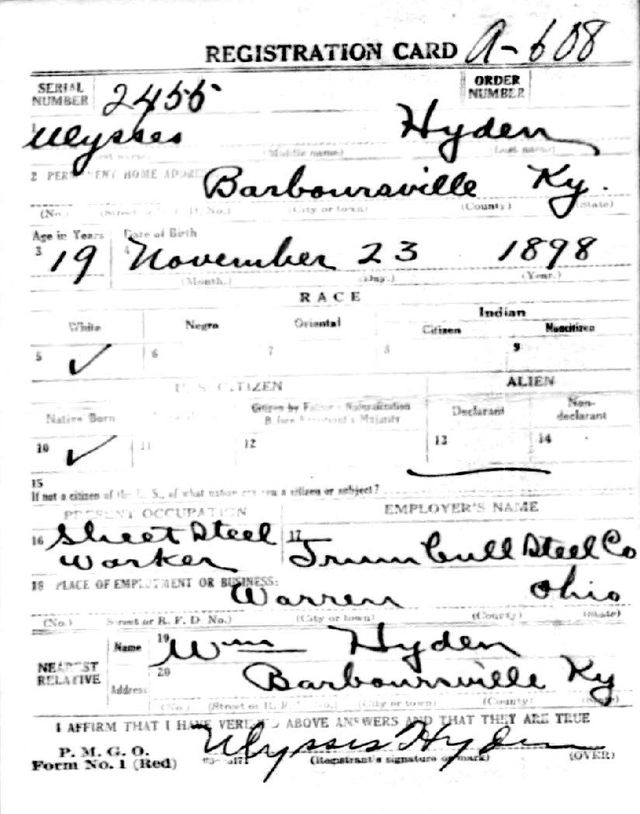 REGISTRATION CARD A-608
SERIAL NUMBER 2455 ORDER NUMBER
1 Ulysses Hyden
(Middle name) (Last name)
2 PERMANENT HOME ADDRESS Barboursville Ky.
(No.) (Street or R. F. D. No.) (City or town) (County) (State)
Age in Years Date of Birth
3 19 4 November 23 1898
(Month.) (Day.) (Year.)
RACE
White Negro Oriental Indian
Citizen Noncitizen
5 ✓ 6 7 8 9
U. S. CITIZEN ALIEN
Native Born Citizen by Father's Naturalization Before Registrant's Majority Declarant Non-declarant
10 ✓ 11 12 13 14
15
If not a citizen of the U. S., of what nation are you a citizen or subject?
PRESENT OCCUPATION EMPLOYER'S NAME
16 Sheet Steel 17
Worker Trumbull Steel Co
18 PLACE OF EMPLOYMENT OR BUSINESS:
Warren Ohio
(No.) Street or R. F. D. No.) (City or town) (County) (State)
NEAREST RELATIVE Name 19 Wm Hyden
Address 20 Barboursville Ky
(No.) (Street or R. F. D. No.) (City or town) (County) (State)
I AFFIRM THAT I HAVE VERIFIED ABOVE ANSWERS AND THAT THEY ARE TRUE
P. M. G. O.
Form No. 1 (Red) Ulysses Hyden
(Registrant's signature or mark) (OVER)